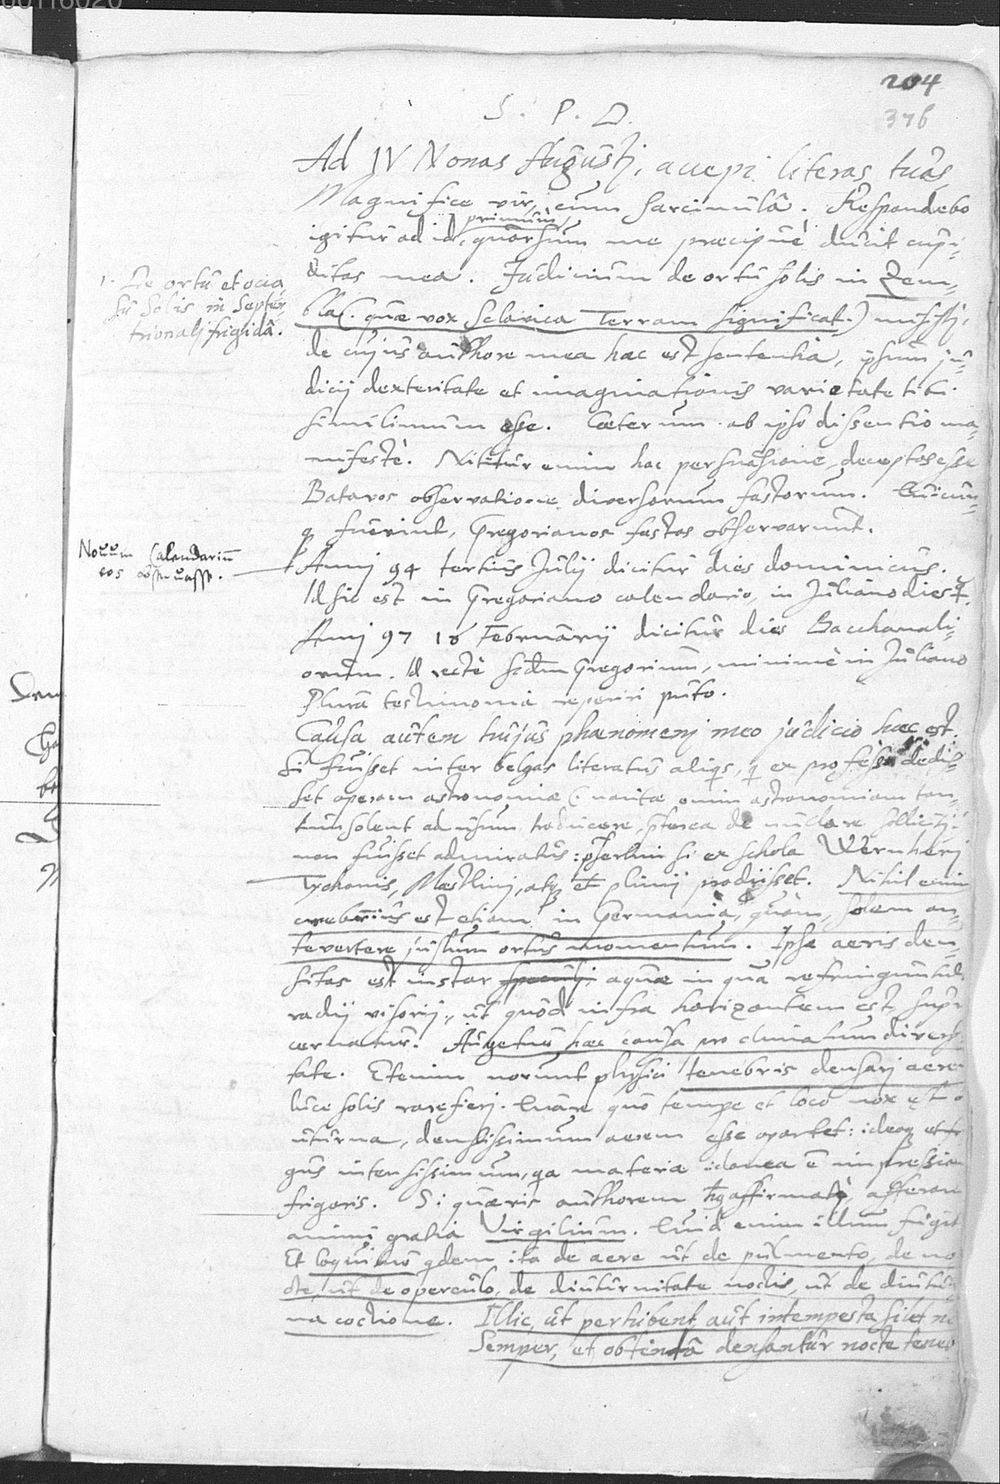 204
376
S. P. D.
Ad IV Nonas Augustj, accepi literas tuas
Magnifice vir, cum sarcinulâ. Respondebo
igitur ad id primùm, quorsum me praecipuè ducit cupi-
ditas mea. Judicium de ortu solis in Zem-
bla (quae vox Sclavica Terram significat.) misistj,
de cujus authore mea haec est sententia, ipsum ju-
dicij dexteritate et imaginationis varietate tibi
simillimum esse. Caeterum ab ipso dissentio ma-
nifestè. Nititur enim hac persuasione, deceptos esse
Batavos observatione diversorum fastorum. Quicun-
q fuerint, Gregorianos fastos observarunt.
Annj 94 tertius Julij dicitur dies dominicus.
Id sic est in Gregoriano calendario, in Juliano dies ☿.
Annj 97 18 Februarij dicitur dies Bacchanali-
orum. Id rectè scdm Gregorium, minimè in Juliano
Plura testimonia reperiri puto.
Causa autem hujus phaenomenj meo judicio haec est.
Si fuisset inter belgas literatus aliqis, q ex professo dedis-
set operam astronomiae (nautae enim astronomiam tan-
tum solent ad usum traducere, pterea de nullâ re sollicitj)
non fuisset admiratus: psertim si ex schola Wernherj
Tychonis, Mestlinj, atq et plinij prodijsset. Nihil enim
crebrius est etiam in Germania, quàm, solem an-
tevertere justum ortus momentum. Ipsa aeris den-
sitas est instar speculj aquae in qua refringuntur
radij visorij, ut quod infra horizontem est, supr
cernatur. Augetur haec causa pro climatum diversi
tate. Etenim norunt physici tenebris densarj aere
luce solis rarefierj. Quare quo tempe et loco nox est
uturna, densissimum aerem esse oportet: ideoq et fr
gus intensissimum, qa materia idonea ē impressio
frigoris. Si quaeris authorem affirmatj, afferam
animj gratia Virgilium. Quid enim illum fugit
Et loquimur qdem ita de aere ut de pulmento, de no
cte ut de operculo, de diuturnitate noctis, ut de diutur
na coctione. Illic, ut perhibent, aut intempesta silet no
Semper, et obtentâ densantur nocte teneb
1. De ortu et occa
su Solis in Septen
trionalj frigidâ.
Novum Calendariū
eos observasse.